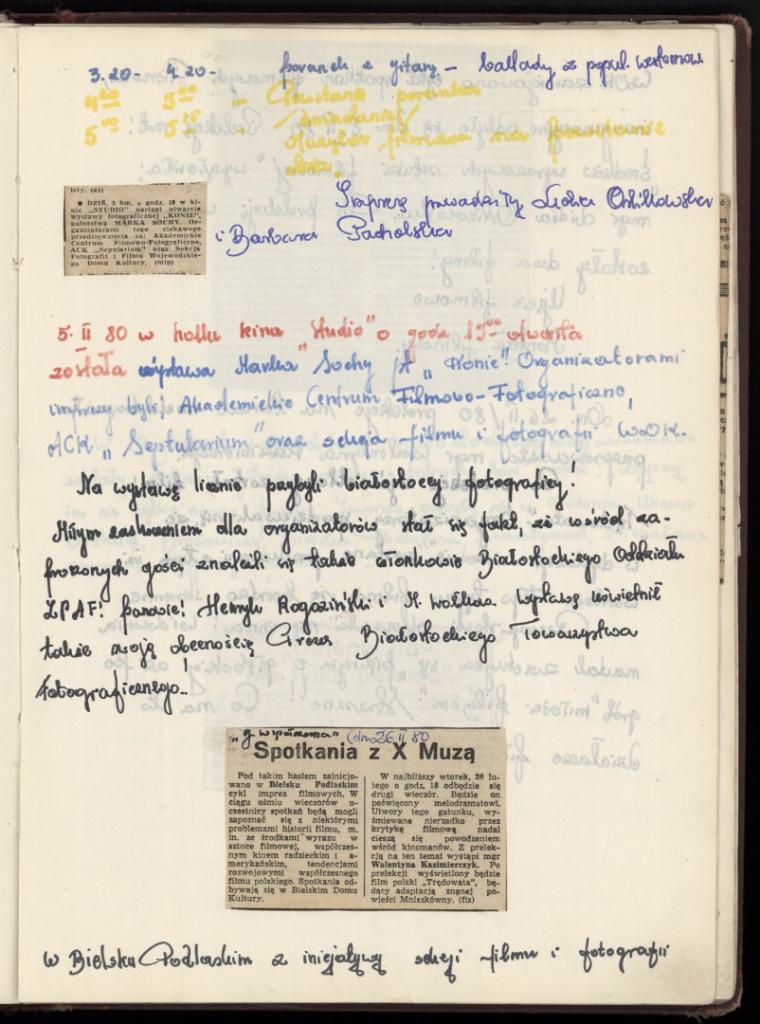 3.20 - 4.20 - poranek z gitarą - ballady z popul. westernów
4²⁰ 5⁰⁰ - Powstanie
5⁰⁰ 5¹⁵ - Muzyka filmowa na
Imprezę prowadziły
i Barbara Pacholska
lety.
● DZIŚ, 5 bm. o godz. 19 w ki-
nie „STUDIO” nastąpi otwarcie
wystawy fotograficznej „KONIE”,
autorstwa MARKA SOCHY. Or-
ganizatorami tego ciekawego
przedsięwzięcia są: Akademickie
Centrum Filmowo-Fotograficzne,
ACK „Septularium” oraz Sekcja
Fotografii i Filmu Wojewódzkie-
go Domu Kultury. (mip)
5. II 80 w hollu kina "Studio" o godz 19⁰⁰ otwarta
została wystawa Marka Sochy pt „Konie". Organizatorami
imprezy byli: Akademickie Centrum Filmowo-Fotograficzne,
ACK „Septularium" oraz sekcja filmu i fotografii WOK.
Na wystawę licznie przybyli białostoccy fotograficy!
Miłym zaskoczeniem dla organizatorów stał się fakt, że wśród za-
proszonych gości znaleźli się także członkowie Białostockiego Oddziału
ZPAF! panowie! Henryk Rogoziński i M. Wołkow. Wystawę uświetnił
także swoją obecnością Prezes Białostockiego Towarzystwa
Fotograficznego..
„g. współczesna" (dnia 26 II 80
Spotkania z X Muzą
Pod takim hasłem zainicjo-
wano w Bielsku Podlaskim
cykl imprez filmowych. W
ciągu ośmiu wieczorów u-
czestnicy spotkań będą mogli
zapoznać się z niektórymi
problemami historii filmu, m.
in. ze środkami wyrazu w
sztuce filmowej, współczes-
nym kinem radzieckim i a-
merykańskim, tendencjami
rozwojowymi współczesnego
filmu polskiego. Spotkania od-
bywają się w Bielskim Domu
Kultury.
W najbliższy wtorek, 26 lu-
tego o godz. 18 odbędzie się
drugi wieczór. Będzie on
poświęcony melodramatowi.
Utwory tego gatunku, wy-
śmiewane nierzadko przez
krytykę filmową nadal
cieszą się powodzeniem
wśród kinomanów. Z prelek-
cją na ten temat wystąpi mgr
Walentyna Kazimierczyk. Po
prelekcji wyświetlony będzie
film polski „Trędowata”, bę-
dący adaptacją znanej po-
wieści Mniszkówny. (fis)
W Bielsku Podlaskim z inicjatywy sekcji filmu i fotografii